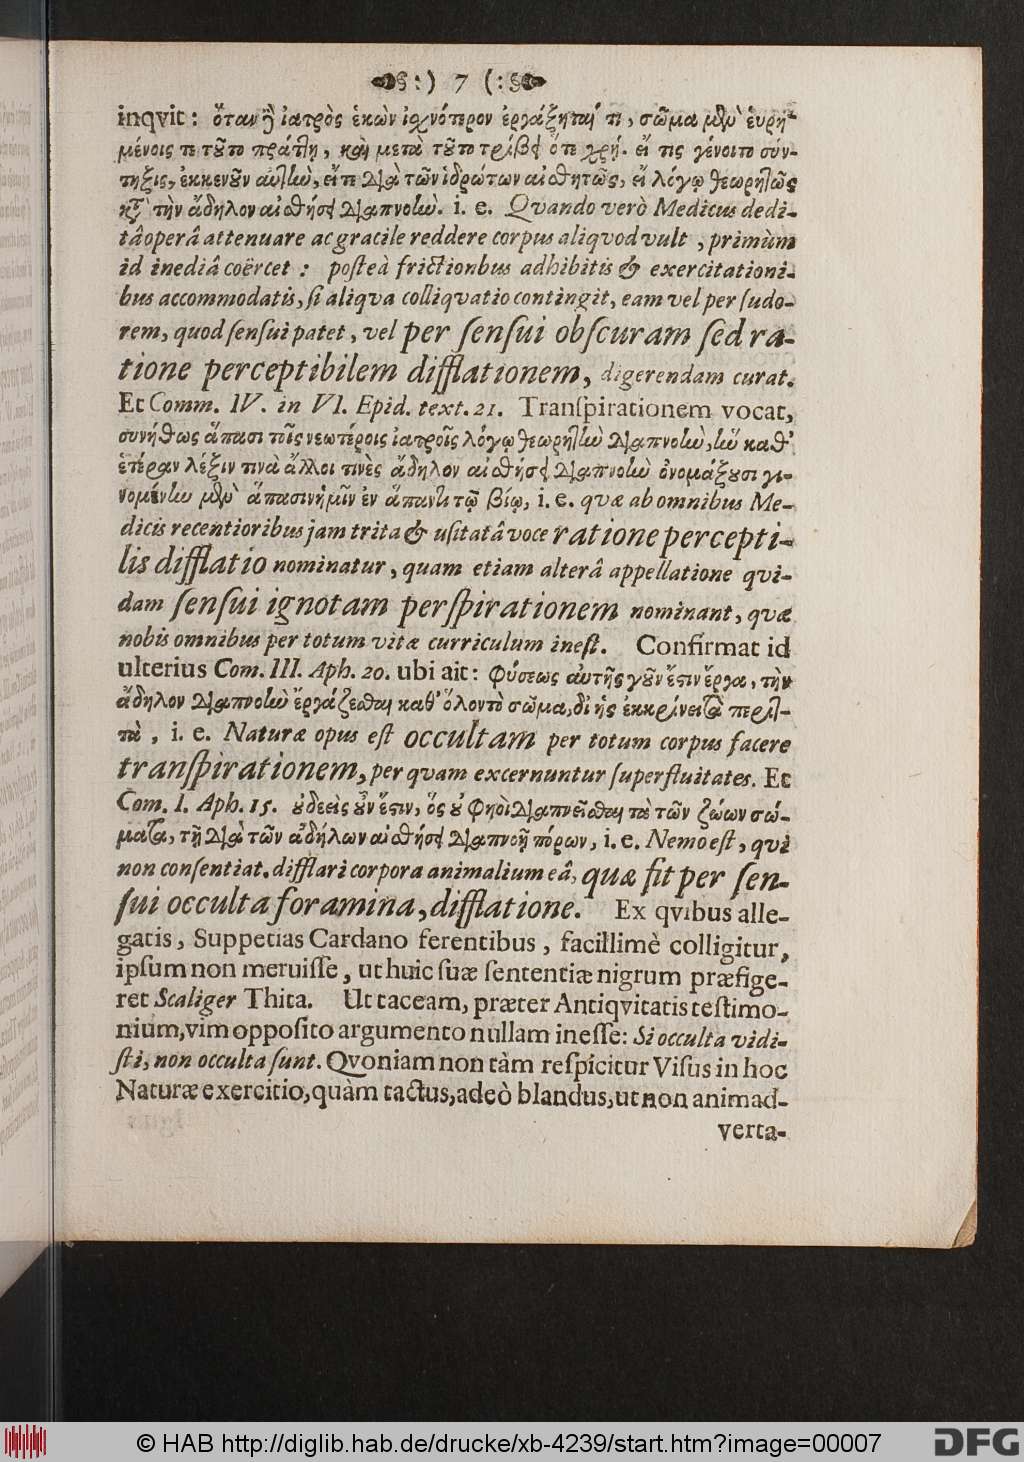 §:) 7 (:§
inqvit: ὅταν ὁ ἰατρὸς ἑκὼν ἰσχνότερον ἐργάζηται τι, σῶμα μὲν εὑρη-
μένοις τε τοῦτο πράττῃ, καὶ μετὰ τοῦτο τρίβειν ὅτε χρή. εἴ τις γένοιτο σύν-
τηξις, ἐκκενοῦν αὐτὴν, εἴτε διὰ τῶν ἱδρώτων αἰσθητῶς, εἴ λόγῳ θεωρητῶς
κατὰ τὴν ἄδηλον αἰσθήσει διαπνοὴν. i. e. Qvando verò Medicus dedi-
tâ operâ attenuare ac gracile reddere corpus aliqvod vult, primùm
id inediâ coërcet: posteà frictionbus adhibitis & exercitationi-
bus accommodatis, si aliqva colliqvatio contingit, eam vel per sudo-
rem, quod sensui patet, vel per sensui obscuram sed ra-
tione perceptibilem difflationem, digerendam curat.
Et Comm. IV. in VI. Epid. text. 21. Transpirationem vocat,
συνήθως ἅπασι τοῖς νεωτέροις ἰατροῖς λόγῳ θεωρητὴν διαπνοὴν, ἣν καθ'
ἑτέραν λέξιν τινὰ ἄλλοι τινὲς ἄδηλον αἰσθήσει διαπνοὴν ὀνομάζουσι γι-
νομένην μὲν ἅπασιν ἡμῖν ἐν ἅπαντι τῷ βίῳ, i. e. quæ ab omnibus Me-
dicis recentioribus jam trita & usitatâ voce ratione percepti-
lis difflatio nominatur, quam etiam alterâ appellatione qvi-
dam sensui ignotam perspirationem nominant, qvæ
nobis omnibus per totum vitæ curriculum inest. Confirmat id
ulterius Com. III. Aph. 20. ubi ait: Φύσεως αὐτῆς γοῦν ἔστιν ἔργα, τὴν
ἄδηλον διαπνοὴν ἐργάζεσθαι καθ' ὅλον τὸ σῶμα, δι ἧς ἐκκρίνεται περιτ-
τὰ, i. e. Naturæ opus est occultam per totum corpus facere
transpirationem, per quam excernuntur superfluitates. Et
Com. I. Aph. 15. οὐδεεὶς οὖν ἔστιν, ὅς οὐ φησὶ διαπνεῖσθαι τὰ τῶν ζώων σώ-
ματα, τῇ διὰ τῶν ἀδήλων αἰσθήσει διαπνοῇ πόρων, i. e. Nemo est, qvi
non consentiat. difflari corpora animalium eâ, quæ fit per sen-
sui occulta foramina, difflatione. Ex qvibus alle-
gatis, Suppetias Cardano ferentibus, facillimè colligitur,
ipsum non meruisse, ut huic suæ sententiæ nigrum præfige-
ret Scaliger Thita. Ut taceam, præter Antiqvitatis testimo-
nium, vim opposito argumento nullam inesse: Si occulta vidi-
sti, non occulta sunt. Qvoniam non tàm respicitur Visus in hoc
Naturæ exercitio, quàm tactus, adeò blandus, ut non animad-
verta-
© HAB http://diglib.hab.de/drucke/xb-4239/start.htm?image=00007
DFG